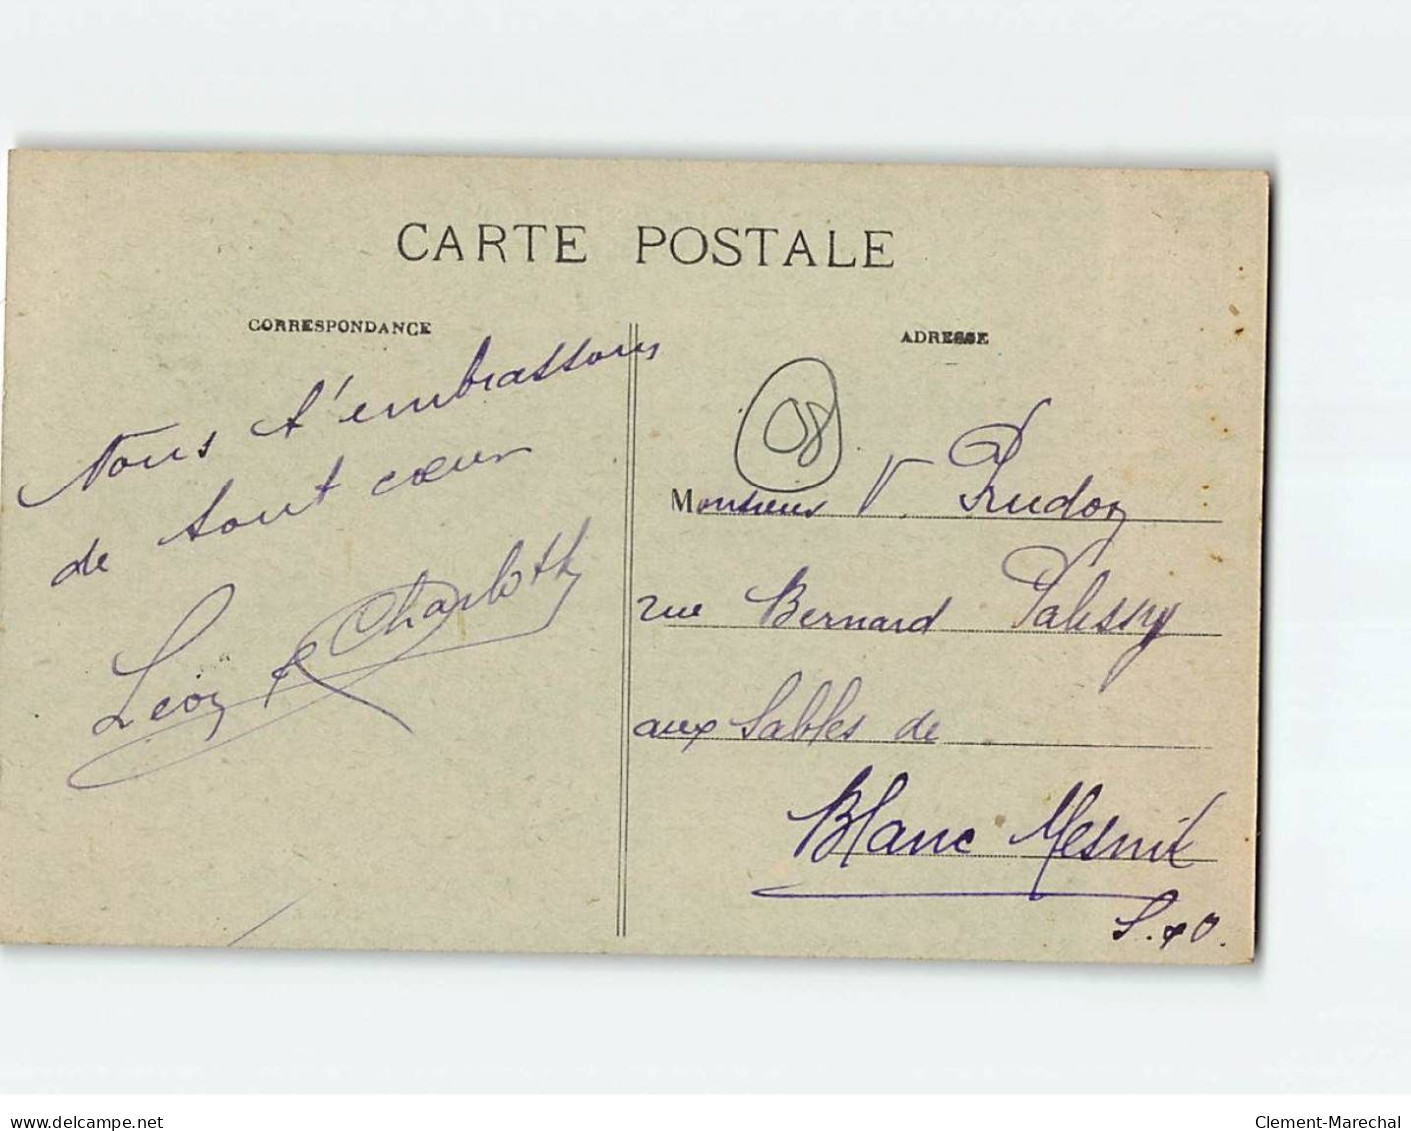 CARTE POSTALE
CORRESPONDANCE
Nous t'embrassons
de tout cœur
Léon & Charloth
ADRESSE
08
Monsieur V. Prudon
rue Bernard Palissy
aux Sables de
Blanc Mesnil
S. & O.
www.delcampe.net
Clement-Marechal